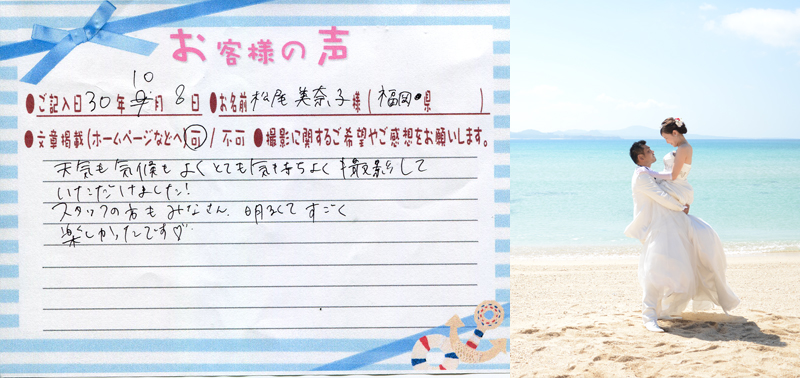 お客様の声
●ご記入日30年10月8日 ●お名前 松尾 美奈子様(福岡●県 )
●文章掲載(ホームページなどへ)可/不可 ●撮影に関するご希望やご感想をお願いします。
天気も気候もよくとても気持ちよく撮影して
いただけました!
スタッフの方もみなさん、明るくてすごく
楽しかったです♡